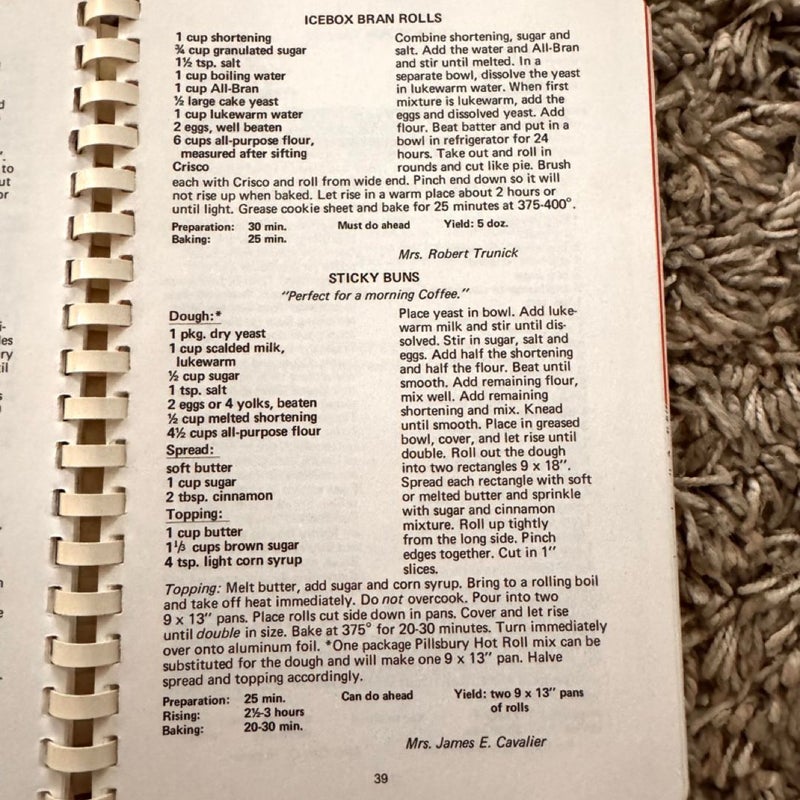 ICEBOX BRAN ROLLS
1 cup shortening
¾ cup granulated sugar
1½ tsp. salt
1 cup boiling water
1 cup All-Bran
½ large cake yeast
1 cup lukewarm water
2 eggs, well beaten
6 cups all-purpose flour,
measured after sifting
Crisco
Combine shortening, sugar and
salt. Add the water and All-Bran
and stir until melted. In a
separate bowl, dissolve the yeast
in lukewarm water. When first
mixture is lukewarm, add the
eggs and dissolved yeast. Add
flour. Beat batter and put in a
bowl in refrigerator for 24
hours. Take out and roll in
rounds and cut like pie. Brush
each with Crisco and roll from wide end. Pinch end down so it will
not rise up when baked. Let rise in a warm place about 2 hours or
until light. Grease cookie sheet and bake for 25 minutes at 375-400°.
Preparation: 30 min. Must do ahead Yield: 5 doz.
Baking: 25 min.
Mrs. Robert Trunick
STICKY BUNS
"Perfect for a morning Coffee."
Dough:*
1 pkg. dry yeast
1 cup scalded milk,
lukewarm
½ cup sugar
1 tsp. salt
2 eggs or 4 yolks, beaten
½ cup melted shortening
4½ cups all-purpose flour
Spread:
soft butter
1 cup sugar
2 tbsp. cinnamon
Topping:
1 cup butter
1⅓ cups brown sugar
4 tsp. light corn syrup
Place yeast in bowl. Add luke-
warm milk and stir until dis-
solved. Stir in sugar, salt and
eggs. Add half the shortening
and half the flour. Beat until
smooth. Add remaining flour,
mix well. Add remaining
shortening and mix. Knead
until smooth. Place in greased
bowl, cover, and let rise until
double. Roll out the dough
into two rectangles 9 x 18".
Spread each rectangle with soft
or melted butter and sprinkle
with sugar and cinnamon
mixture. Roll up tightly
from the long side. Pinch
edges together. Cut in 1"
slices.
Topping: Melt butter, add sugar and corn syrup. Bring to a rolling boil
and take off heat immediately. Do not overcook. Pour into two
9 x 13" pans. Place rolls cut side down in pans. Cover and let rise
until double in size. Bake at 375° for 20-30 minutes. Turn immediately
over onto aluminum foil. *One package Pillsbury Hot Roll mix can be
substituted for the dough and will make one 9 x 13" pan. Halve
spread and topping accordingly.
Preparation: 25 min. Can do ahead Yield: two 9 x 13" pans
Rising: 2½-3 hours of rolls
Baking: 20-30 min.
Mrs. James E. Cavalier
39